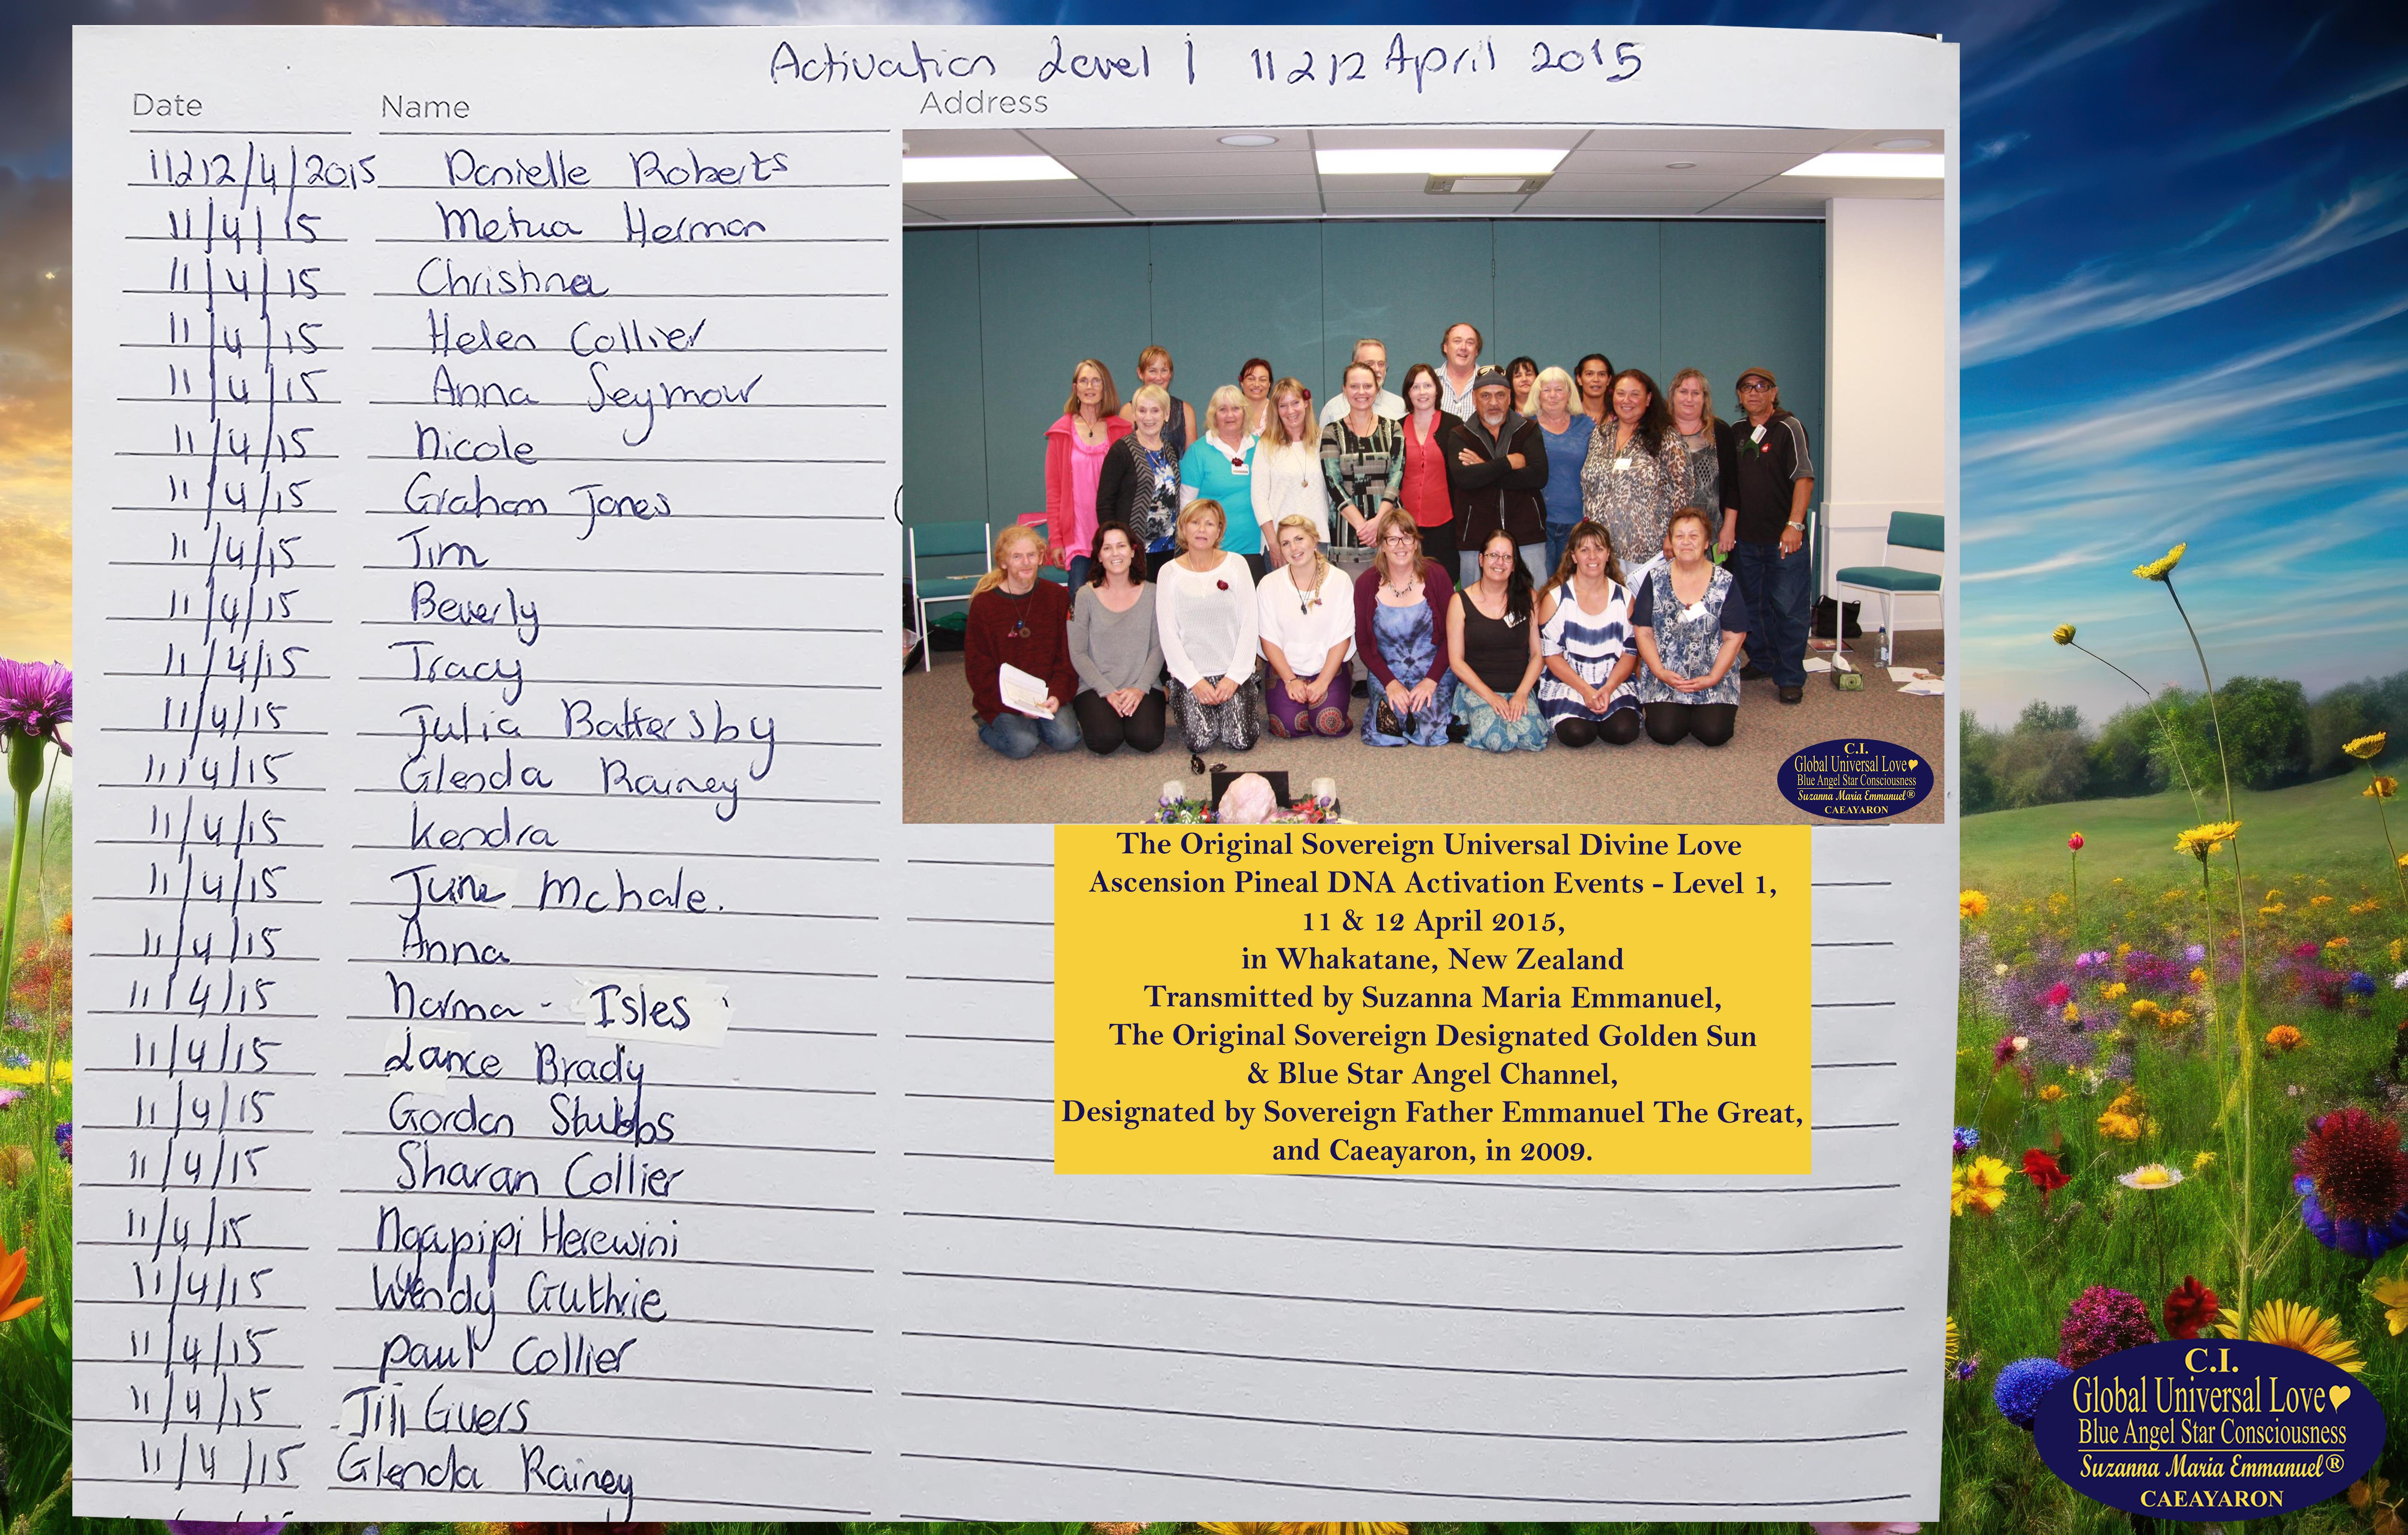 Activation Level 1 11 & 12 April 2015
Date Name Address
11&12/4/2015 Danielle Roberts
11/4/15 Metua Herman
11/4/15 Christina
11/4/15 Helen Collier
11/4/15 Anna Seymour
11/4/15 Nicole
11/4/15 Graham Jones
11/4/15 Tim
11/4/15 Beverly
11/4/15 Tracy
11/4/15 Julia Battersby
11/4/15 Glenda Rainey
11/4/15 Kendra
11/4/15 June McHale.
11/4/15 Anna
11/4/15 Norma - Isles
11/4/15 Lance Brady
11/4/15 Gordon Stubbs
11/4/15 Sharan Collier
11/4/15 Ngapipi Herewini
11/4/15 Wendy Guthrie
11/4/15 Paul Collier
11/4/15 Jill
11/4/15 Glenda Rainey
C.I.
Global Universal Love
Blue Angel Star Consciousness
Suzanna Maria Emmanuel®
CAEAYARON
The Original Sovereign Universal Divine Love
Ascension Pineal DNA Activation Events - Level 1,
11 & 12 April 2015,
in Whakatane, New Zealand
Transmitted by Suzanna Maria Emmanuel,
The Original Sovereign Designated Golden Sun
& Blue Star Angel Channel,
Designated by Sovereign Father Emmanuel The Great,
and Caeayaron, in 2009.
C.I.
Global Universal Love
Blue Angel Star Consciousness
Suzanna Maria Emmanuel®
CAEAYARON